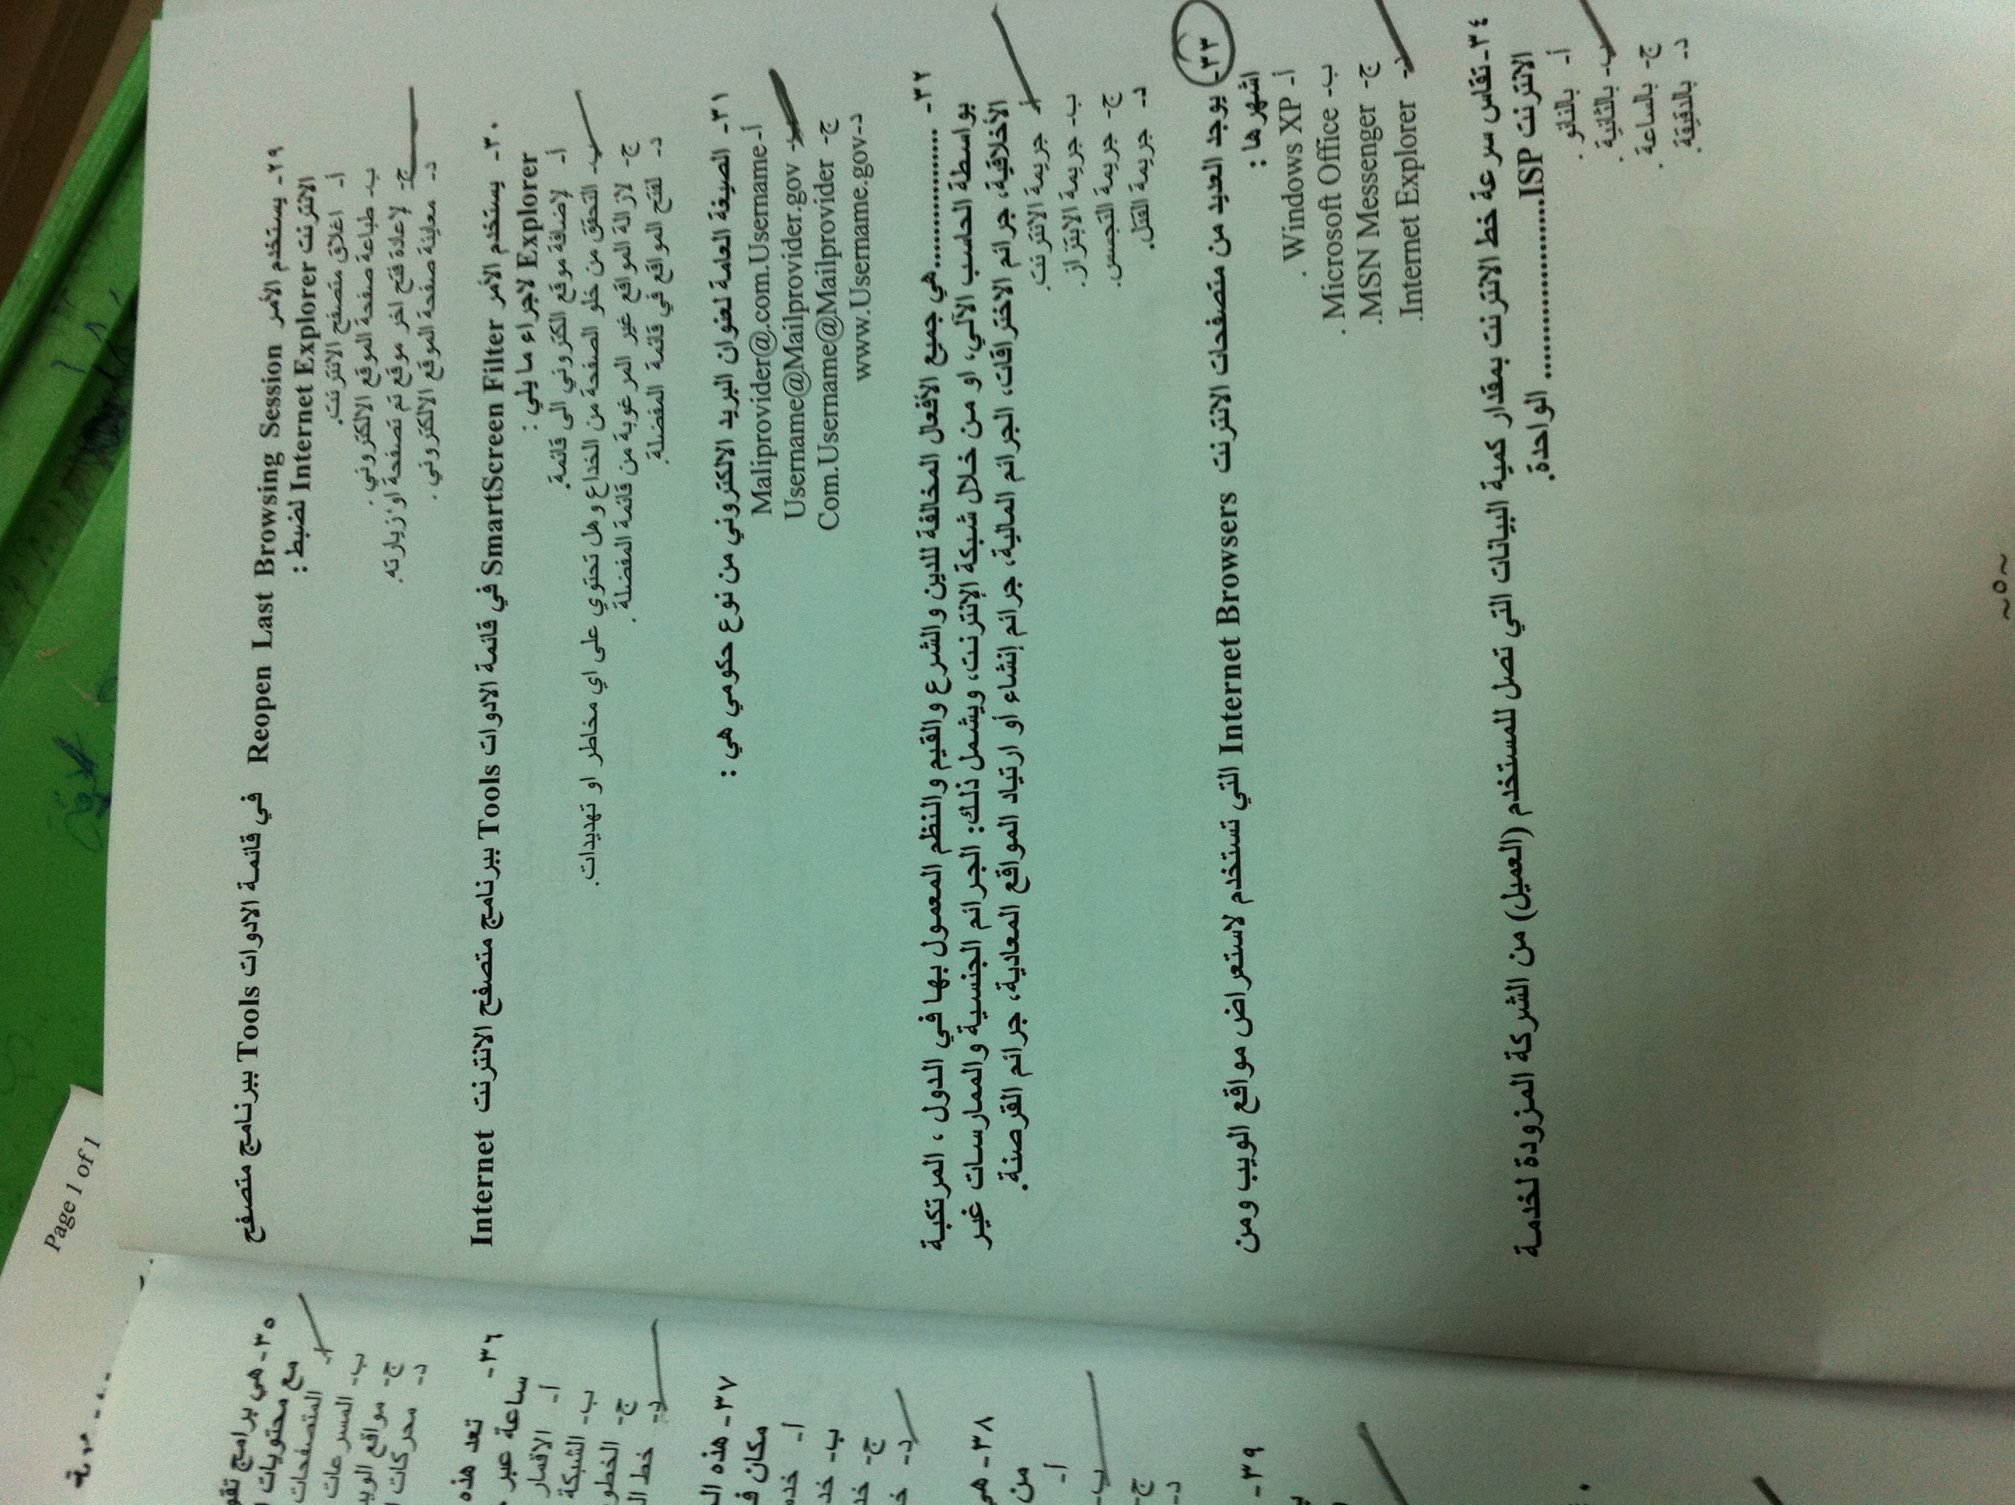 ٢٩- يستخدم الأمر Reopen Last Browsing Session في قائمة الادوات Tools ببرنامج متصفح
الانترنت Internet Explorer لضبط :
أ- اغلاق متصفح الانترنت.
ب- طباعة صفحة الموقع الالكتروني .
ج- لإعادة فتح اخر موقع تم تصفحة او زيارته.
د- معاينة صفحة الموقع الالكتروني .
٣٠- يستخدم الأمر SmartScreen Filter في قائمة الادوات Tools ببرنامج متصفح الانترنت Internet
Explorer لاجراء ما يلي :
أ- لإضافة موقع الكتروني الى قائمة.
ب- التحقق من خلو الصفحة من الخداع وهل تحتوي على اي مخاطر او تهديدات.
ج- لازالة المواقع غير المرغوبة من قائمة المفضلة .
د- لفتح المواقع في قائمة المفضلة.
٣١- الصيغة العامة لعنوان البريد الالكتروني من نوع حكومي هي :
أ- Maliprovider@.com.Username
ب- Username@Mailprovider.gov
ج- Com.Username@Mailprovider
د- www.Username.gov
٣٢- ..................هي جميع الأفعال المخالفة للدين والشرع والقيم والنظم المعمول بها في الدول ، المرتكبة
بواسطة الحاسب الآلي، او من خلال شبكة الإنترنت، ويشمل ذلك: الجرائم الجنسية والممارسات غير
الأخلاقية، جرائم الاختراقات، الجرائم المالية، جرائم إنشاء أو ارتياد المواقع المعادية، جرائم القرصنة.
أ- جريمة الانترنت.
ب- جريمة الابتزاز.
ج- جريمة التجسس.
د- جريمة القتل.
٣٣- يوجد العديد من متصفحات الانترنت Internet Browsers التي تستخدم لاستعراض مواقع الويب ومن
اشهرها :
أ- Windows XP .
ب- Microsoft Office .
ج- MSN Messenger.
د- Internet Explorer.
٣٤- تقاس سرعة خط الانترنت بمقدار كمية البيانات التي تصل للمستخدم (العميل) من الشركة المزودة لخدمة
الانترنت ISP........................ الواحدة.
أ- بالنانو .
ب- بالثانية .
ج- بالساعة .
د- بالدقيقة.
~٥~
Page 1 of 1
٣٥- هي برامج
مع محتويات
المتصفحات
ب- المسرعات
ج- مواقع
د- محركات
٣٦- تعد هذه
ساعة عبر
أ- الاقمار
ب- الشبكة
ج-
د- خط
٣٧- هذه
مكان
أ-
ب-
ج-
د-
٣٨- هي
من
أ-
ب-
ج-
د-
٣٩-